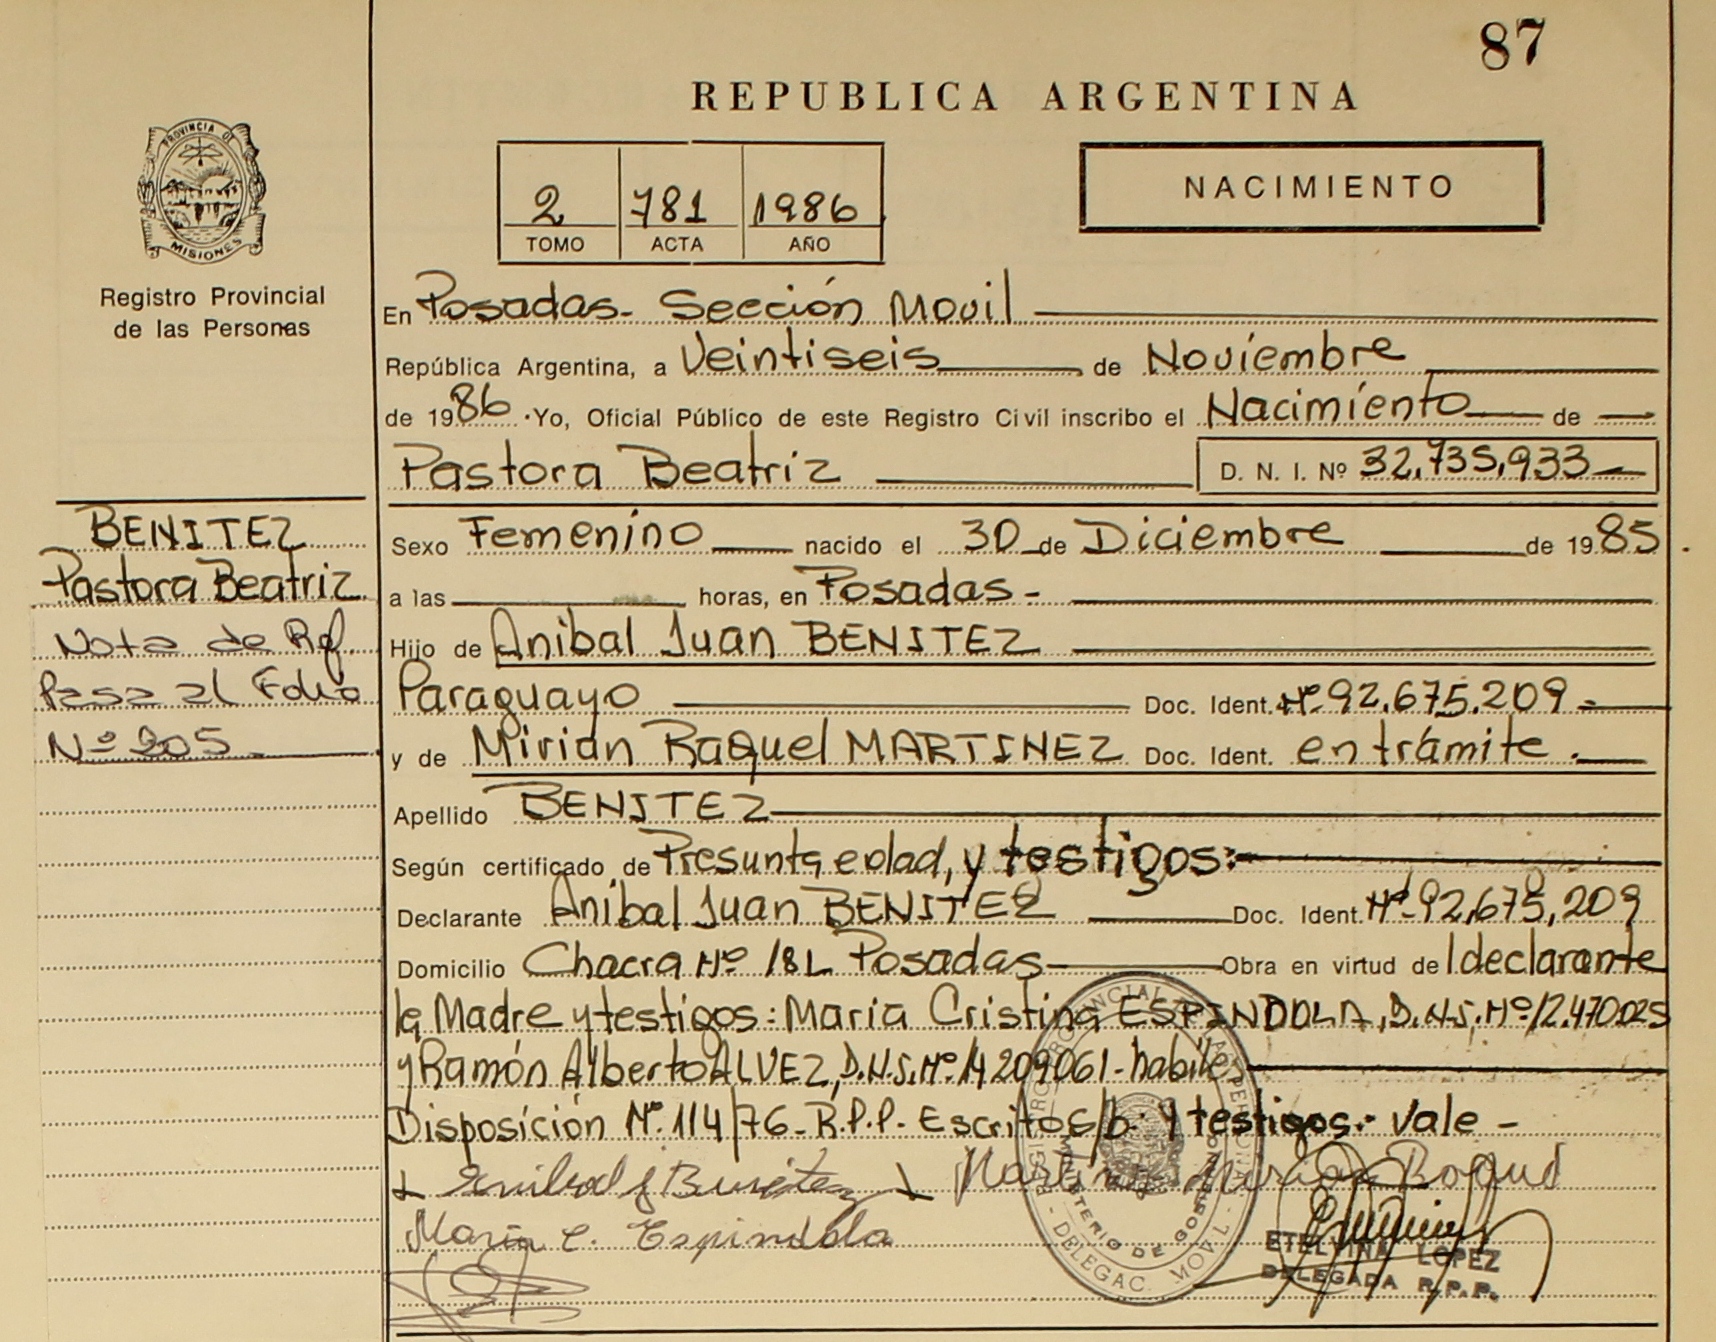 87
REPUBLICA ARGENTINA
PROVINCIA DE
MISIONES
Registro Provincial
de las Personas
2 781 1986
TOMO ACTA AÑO
NACIMIENTO
En Posadas- Sección Movil
República Argentina, a Veintiseis de Noviembre
de 1986. Yo, Oficial Público de este Registro Civil inscribo el Nacimiento de
Pastora Beatriz D. N. I. Nº 32,735,933
BENITEZ
Pastora Beatriz
Nota de Ref.
Pasa al Folio
Nº 205
Sexo Femenino nacido el 30 de Diciembre de 1985.
a las horas, en Posadas-
Hijo de Anibal Juan BENITEZ
Paraguayo Doc. Ident. Nº 92.675.209-
y de Mirian Raquel MARTINEZ Doc. Ident. en trámite.
Apellido BENITEZ
Según certificado de Presunta edad, y testigos:-
Declarante Anibal Juan BENITEZ Doc. Ident. Nº 92,675,209
Domicilio Chacra Nº 181 Posadas- Obra en virtud de l declarante
la Madre y testigos: Maria Cristina ESPINDOLA, D.N.I. Nº 12.470.025
y Ramón Alberto ALVEZ, D.N.I. Nº 14209061-habiles
Disposición Nº 114/76-R.P.P.- Escrito s/b: y testigos:- vale-
Anibal J Benitez Martinez Mirian Raquel
Maria C. Espindola
MINISTERIO DE GOBIERNO
DELEGAC. MOVIL
ETELVINA LOPEZ
DELEGADA R.P.P.